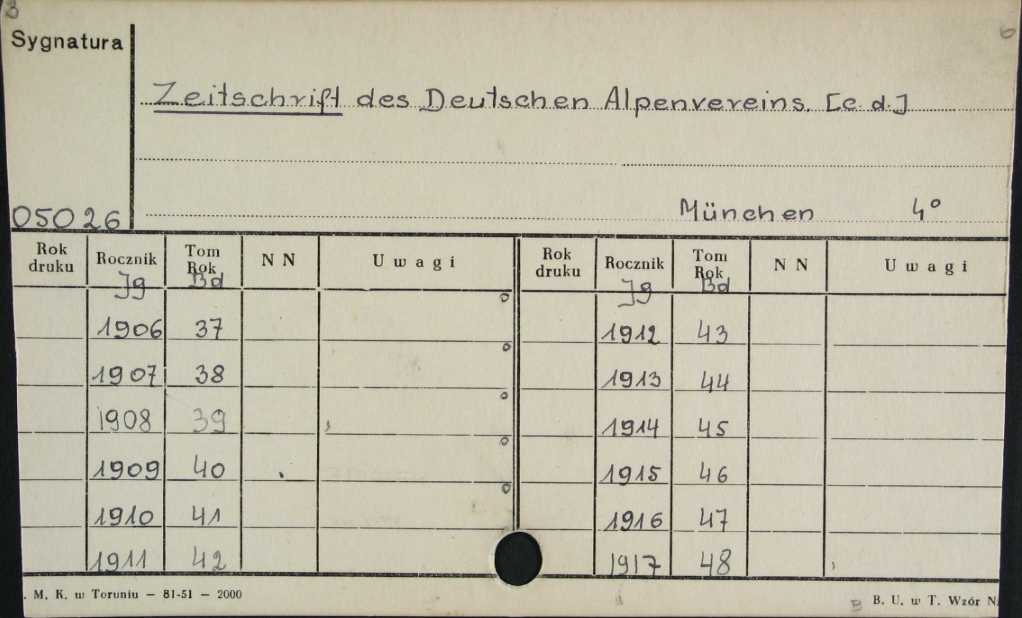 3
6
Sygnatura
Zeitschrift des Deutschen Alpenvereins. [c. d.]
05026
München 4°
Rok druku Rocznik Tom Rok N N Uwagi Rok druku Rocznik Tom Rok N N Uwagi
Jg Bd Jg Bd
1906 37 1912 43
1907 38 1913 44
1908 39 1914 45
1909 40 1915 46
1910 41 1916 47
1911 42 1917 48
. M. K. w Toruniu — 81-51 — 2000
B. U. w T. Wzór N